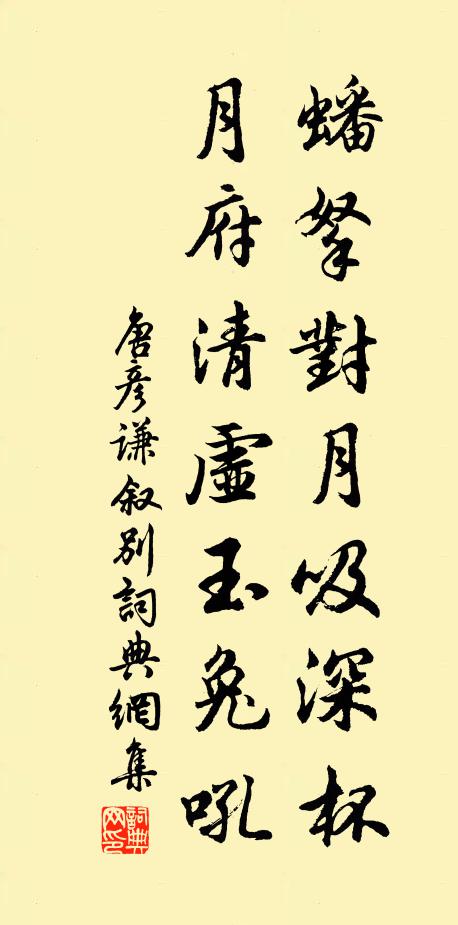 蟠拏對月吸深杯
月府清虛玉兔吼
唐彥謙叙別詞典網集
詞典网印